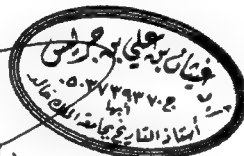 أ.د. غيثان بن علي بن جريس
ج ٠٥٠٣٧٣٩٣٧٠
أبها
أستاذ التاريخ بجامعة الملك خالد